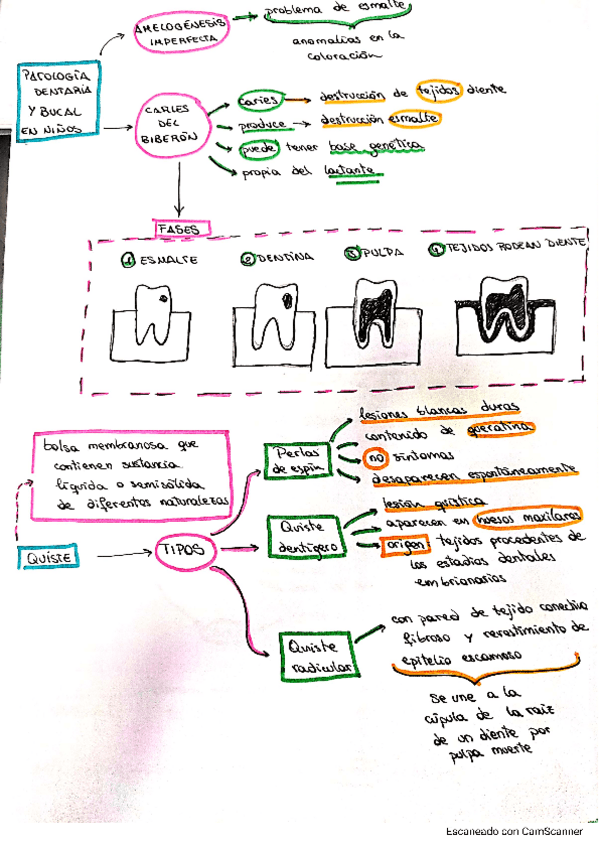 problema de esmalte
AMELOGÉNESIS
IMPERFECTA
anomalías en la
coloración
PATOLOGÍA
DENTARIA
Y BUCAL
EN NIÑOS
CARIES
DEL
BIBERÓN
caries → destrucción de tejidos diente
produce → destrucción esmalte
puede tener base genética
propia del lactante
FASES
1 ESMALTE
2 DENTINA
3 PULPA
4 TEJIDOS RODEAN DIENTE
bolsa membranosa que
contienen sustancia
líquida o semisólida
de diferentes naturalezas
QUISTE
TIPOS
Perlas
de espin
lesiones blancas duras
contenido de queratina
no síntomas
desaparecen espontáneamente
Quiste
dentígero
lesión quística
aparecen en huesos maxilares
origen: tejidos procedentes de
los estadios dentales
embrionarios
Quiste
radicular
con pared de tejido conectivo
fibroso y revestimiento de
epitelio escamoso
se une a la
cúpula de la raíz
de un diente por
pulpa muerte
Escaneado con CamScanner